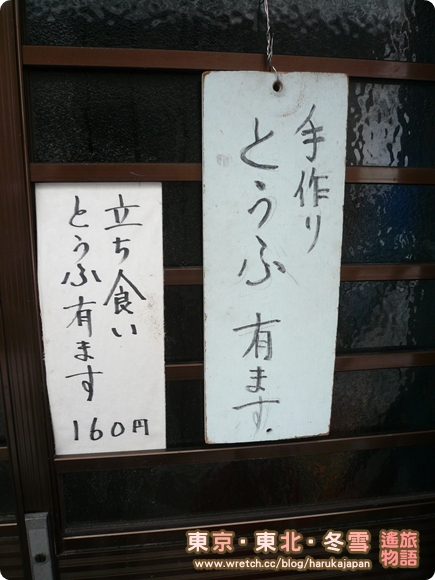 手作り
とうふ有ます.
立ち食い
とうふ有ます
160円
東京・東北・冬雪 遙旅物語
www.wretch.cc/blog/harukajapan